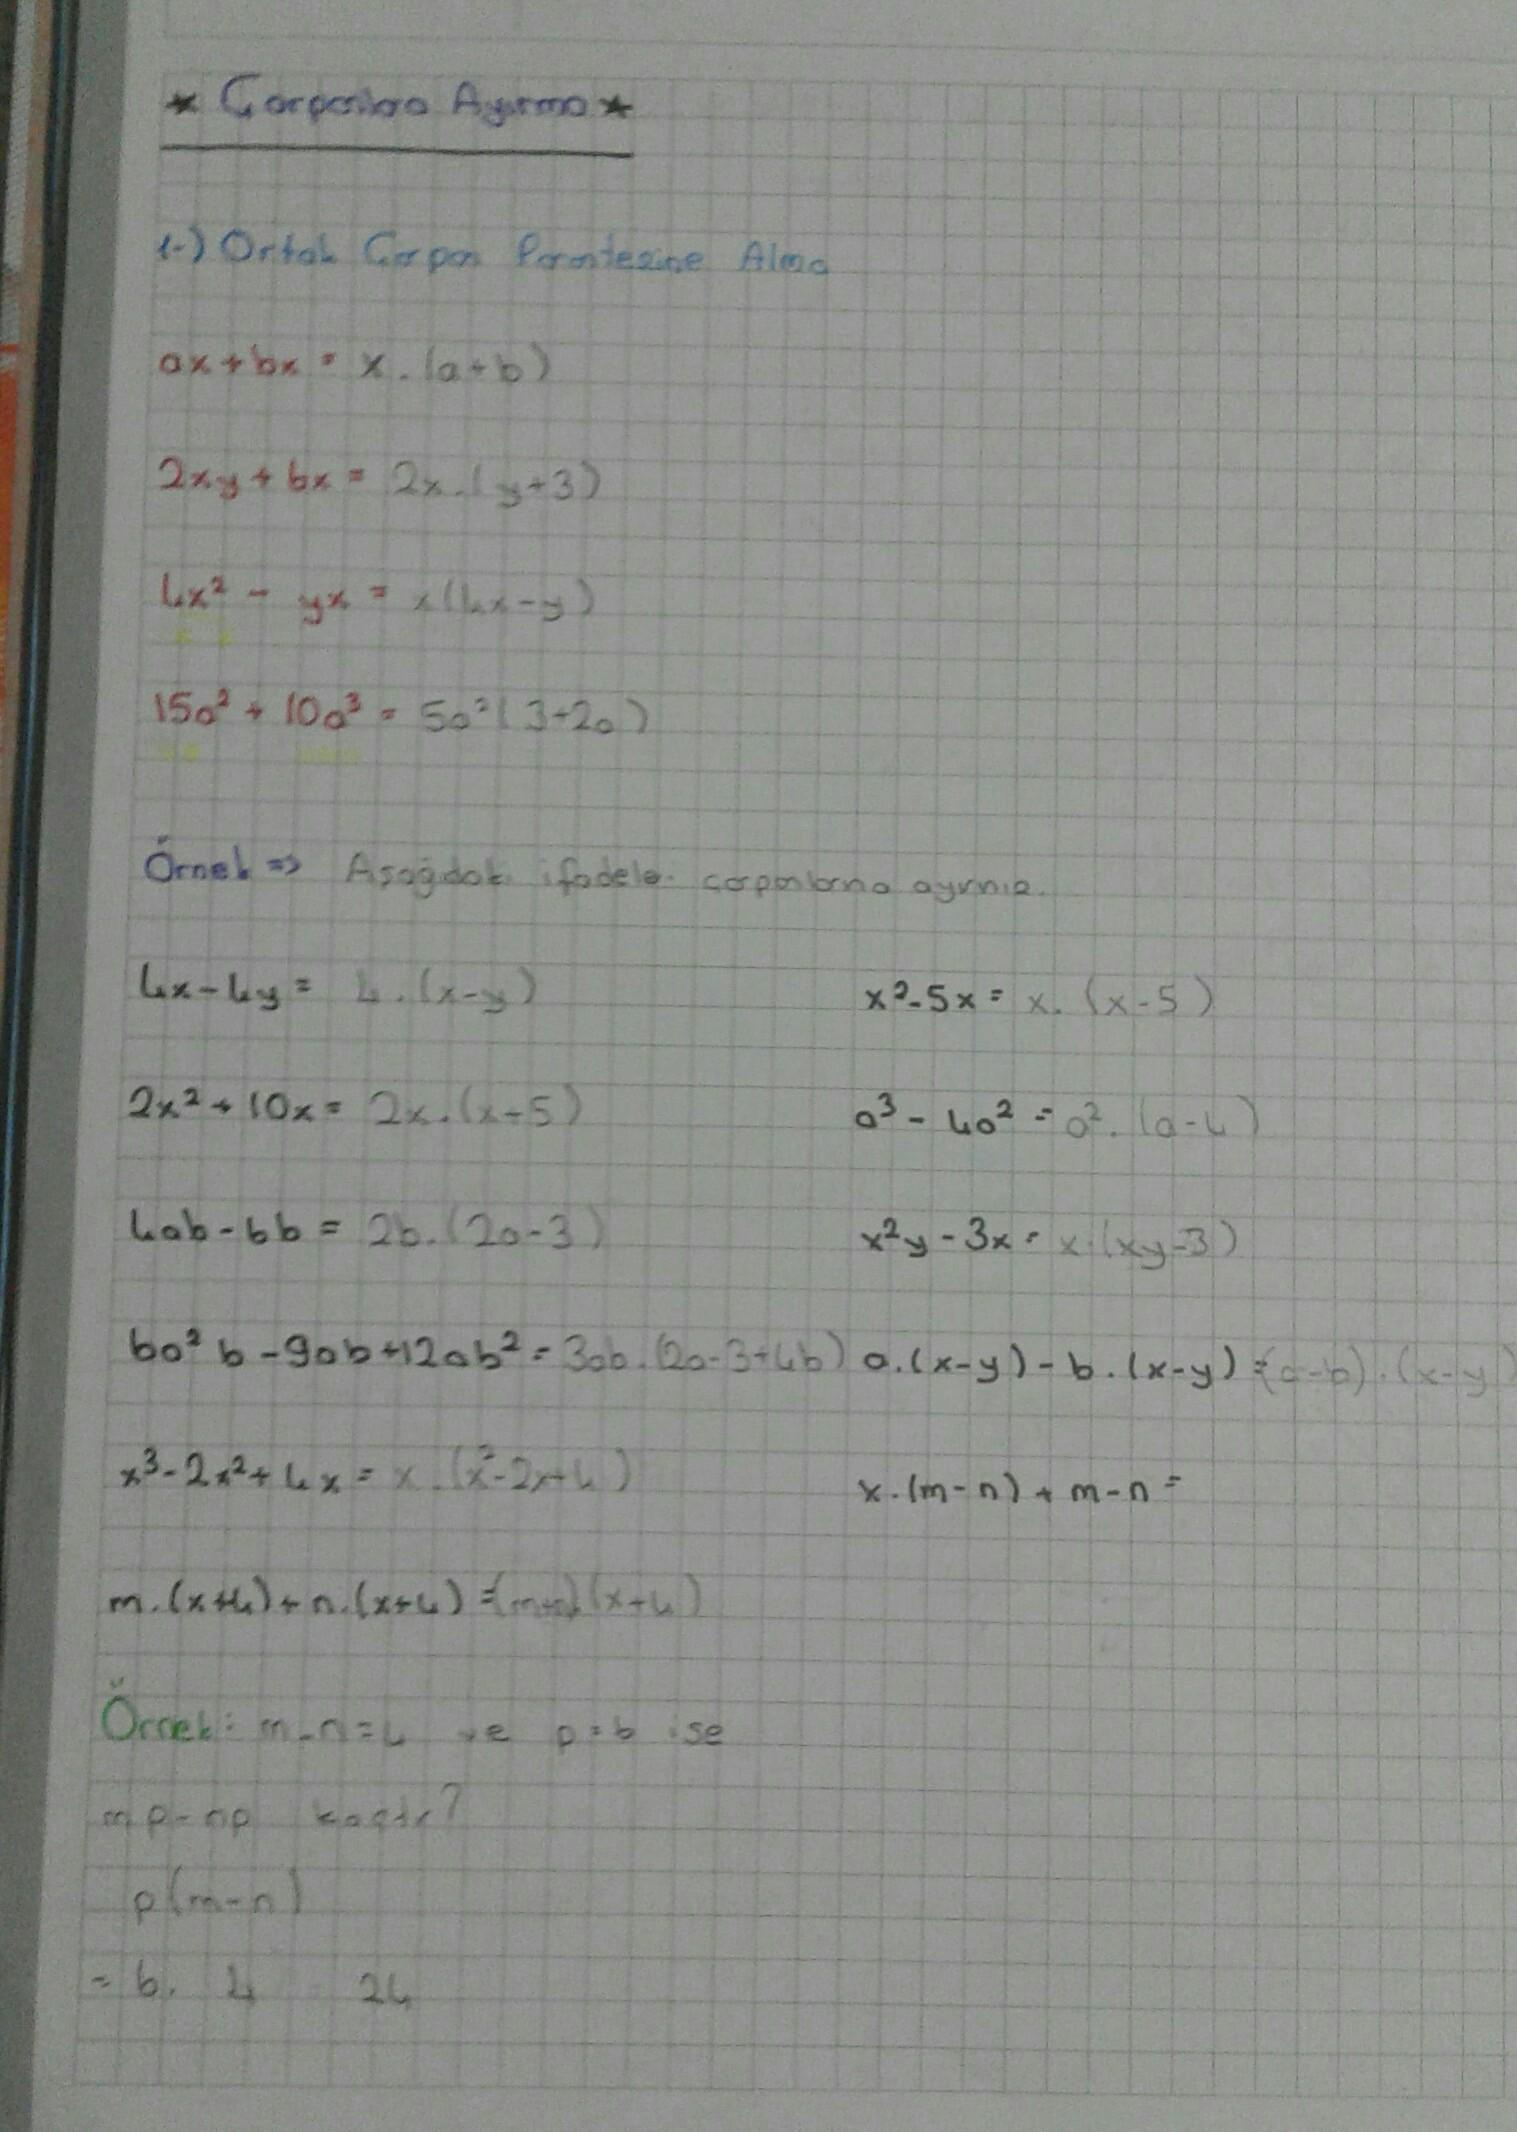 ★ Çarpanlara Ayırma ★
1-) Ortak Çarpan Parantezine Alma
ax+bx = x.(a+b)
2xy+6x = 2x.(y+3)
4x² - yx = x(4x-y)
15a² + 10a³ = 5a²(3+2a)
Örnek => Aşağıdaki ifadeleri çarpanlarına ayırınız.
4x-4y = 4.(x-y)
x²-5x = x.(x-5)
2x²+10x = 2x.(x+5)
a³-4a² = a².(a-4)
4ab-6b = 2b.(2a-3)
x²y-3x = x.(xy-3)
6a²b-9ab+12ab² = 3ab.(2a-3+4b)
a.(x-y)-b.(x-y) = (a-b).(x-y)
x³-2x²+4x = x.(x²-2x+4)
x.(m-n)+m-n =
m.(x+4)+n.(x+4) = (m+n)(x+4)
Örnek: m-n=4 ve p=6 ise
mp-np kaçtır?
p(m-n)
= 6. 4 24